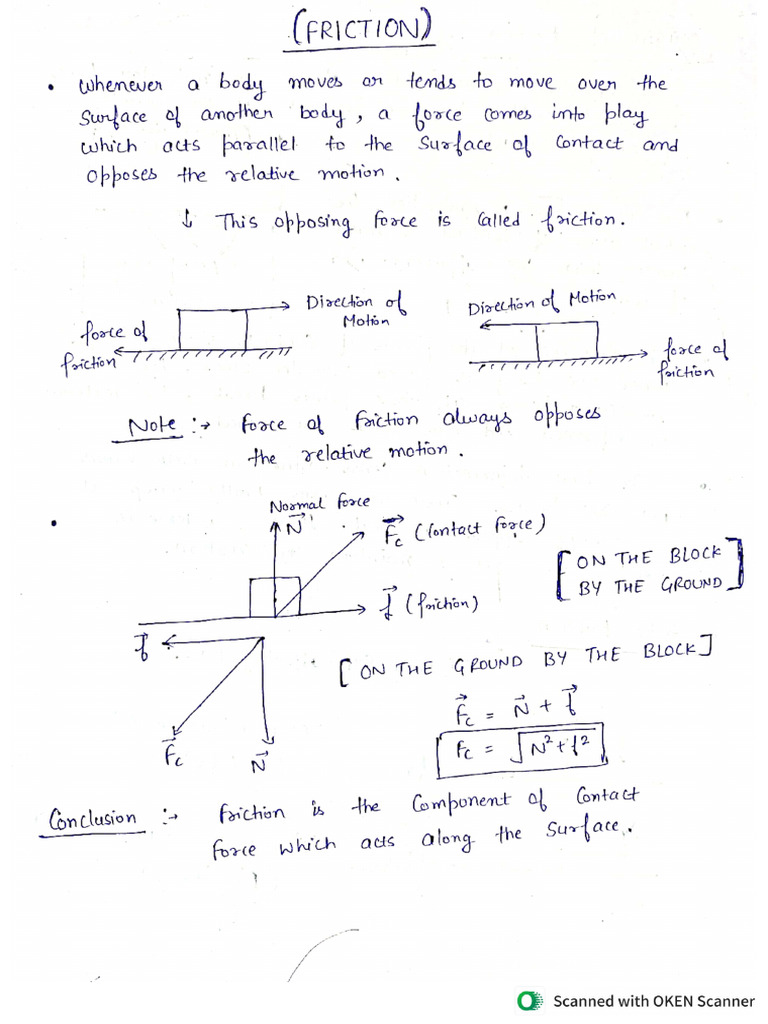 (FRICTION)
• Whenever a body moves or tends to move over the
Surface of another body, a force comes into play
which acts parallel to the Surface of Contact and
opposes the relative motion.
↓ This opposing force is called friction.
Direction of
Motion
force of
friction
Direction of Motion
force of
friction
Note :→ force of friction always opposes
the relative motion.
•
Normal force
N⃗
F⃗c (Contact force)
f⃗ (friction)
[ON THE BLOCK
BY THE GROUND]
f⃗
F⃗c
N⃗
[ON THE GROUND BY THE BLOCK]
F⃗c = N⃗ + f⃗
Fc = √N²+f²
Conclusion :→ friction is the Component of Contact
force which acts along the Surface.
Scanned with OKEN Scanner